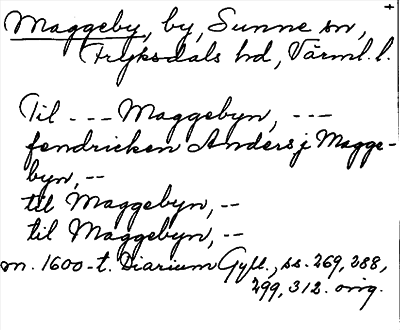 Maggeby, by, Sunne sn,
Fryksdals hd, Värml. l.
Til --- Maggebyn, ---
fendricken Anders j Magge-
byn, --
till Maggebyn, --
til Maggebyn, --
m. 1600-t. Diarium Gyll., ss. 269, 288,
299, 312. orig.